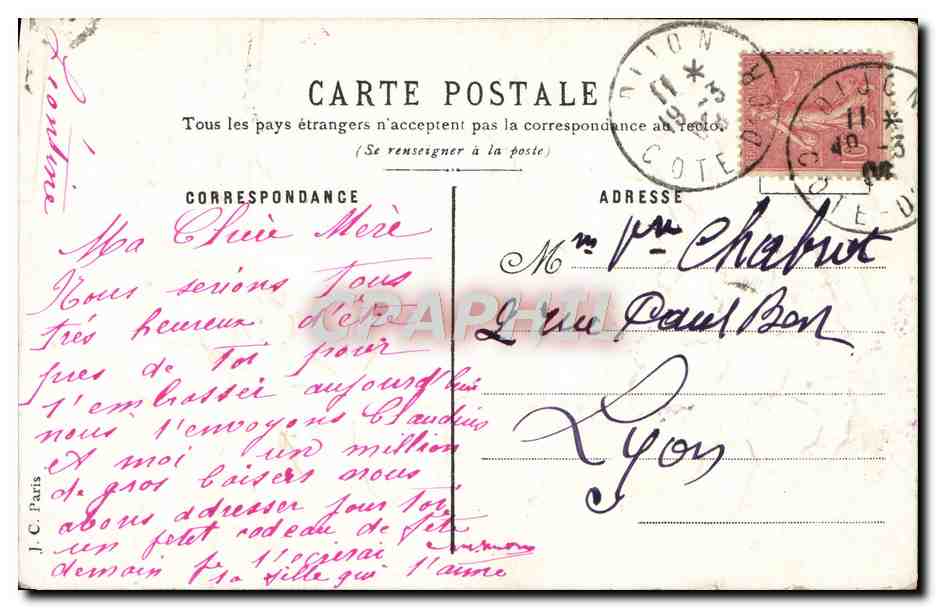 CARTE POSTALE
Tous les pays étrangers n'acceptent pas la correspondance au recto.
(Se renseigner à la poste)
CORRESPONDANCE
Ma Chère Mère
Nous serions tous
très heureux d'être
près de toi pour
t'embrasser aujourd'hui
nous t'envoyons Claudius
et moi un million
de gros baisers nous
avons adresser pour toi
un petit cadeau de fête
demain je t'écrirai
ta fille qui t'aime
Léontine
ADRESSE
Mm Vve Chabrot
2 rue Paul Bert
Lyon
DIJON
11 *
19 -3
COTE-D'OR
DIJON
11 *
19 -3
COTE-D'
10
J. C. Paris
CPAPHIL